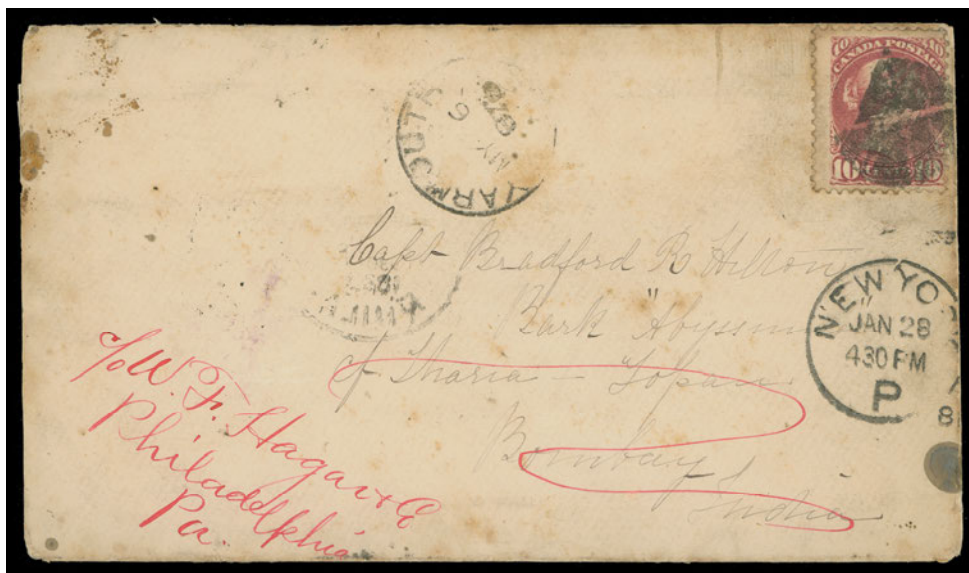 CANADA POSTAGE
10 10
YARMOUTH
MY
9
Capt Bradford R Hilton
Bark "Abyssinia
of Tharia - Topan
Bombay
India
NEW YO
JAN 28
430 PM
P
8
c/o W. F. Hagar & Co
Philadelphia
Pa.